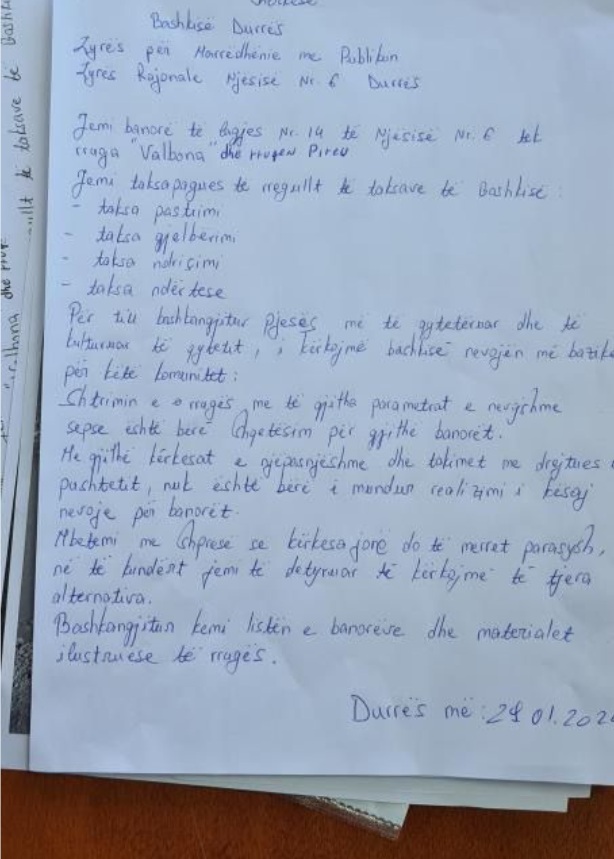 Bashkisë Durrës
Zyrës për Marrëdhënie me Publikun
Zyres Rajonale Njesisë Nr. 6 Durrës
Jemi banorë të lagjes Nr. 14 të Njësisë Nr. 6 tek
rruga "Valbona" dhe rrugen Pireu
Jemi taksapagues të rregullt të taksave të Bashkisë :
- taksa pastrimi
- taksa gjelbërimi
- taksa ndriçimi
- taksa ndërtese
Për t'iu bashkangjitur pjesës më të qytetëruar dhe të
kulturuar të qytetit, i kërkojmë bashkisë nevojën më bazike
për këtë komunitet :
Shtrimin e rrugës me të gjitha parametrat e nevojshme
sepse është bërë shqetësim për gjithë banorët.
Me gjithë kërkesat e njëpasnjëshme dhe takimet me drejtues
pushtetit, nuk është bërë i mundur realizimi i kësaj
nevoje për banorët.
Mbetemi me shpresë se kërkesa jonë do të merret parasysh,
në të kundërt jemi të detyruar të kërkojmë të tjera
alternativa.
Bashkangjitur kemi listën e banorëve dhe materialet
ilustruese të rrugës.
Durrës më : 29.01.202